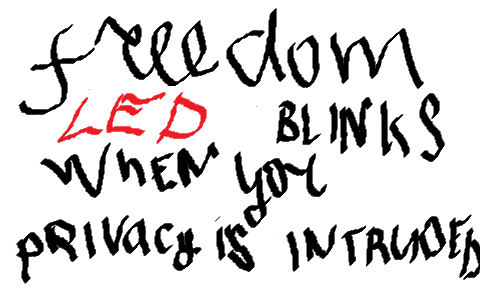 freedom
LED BLINKS
WHEN YOU
PRIVACY IS INTRUDED